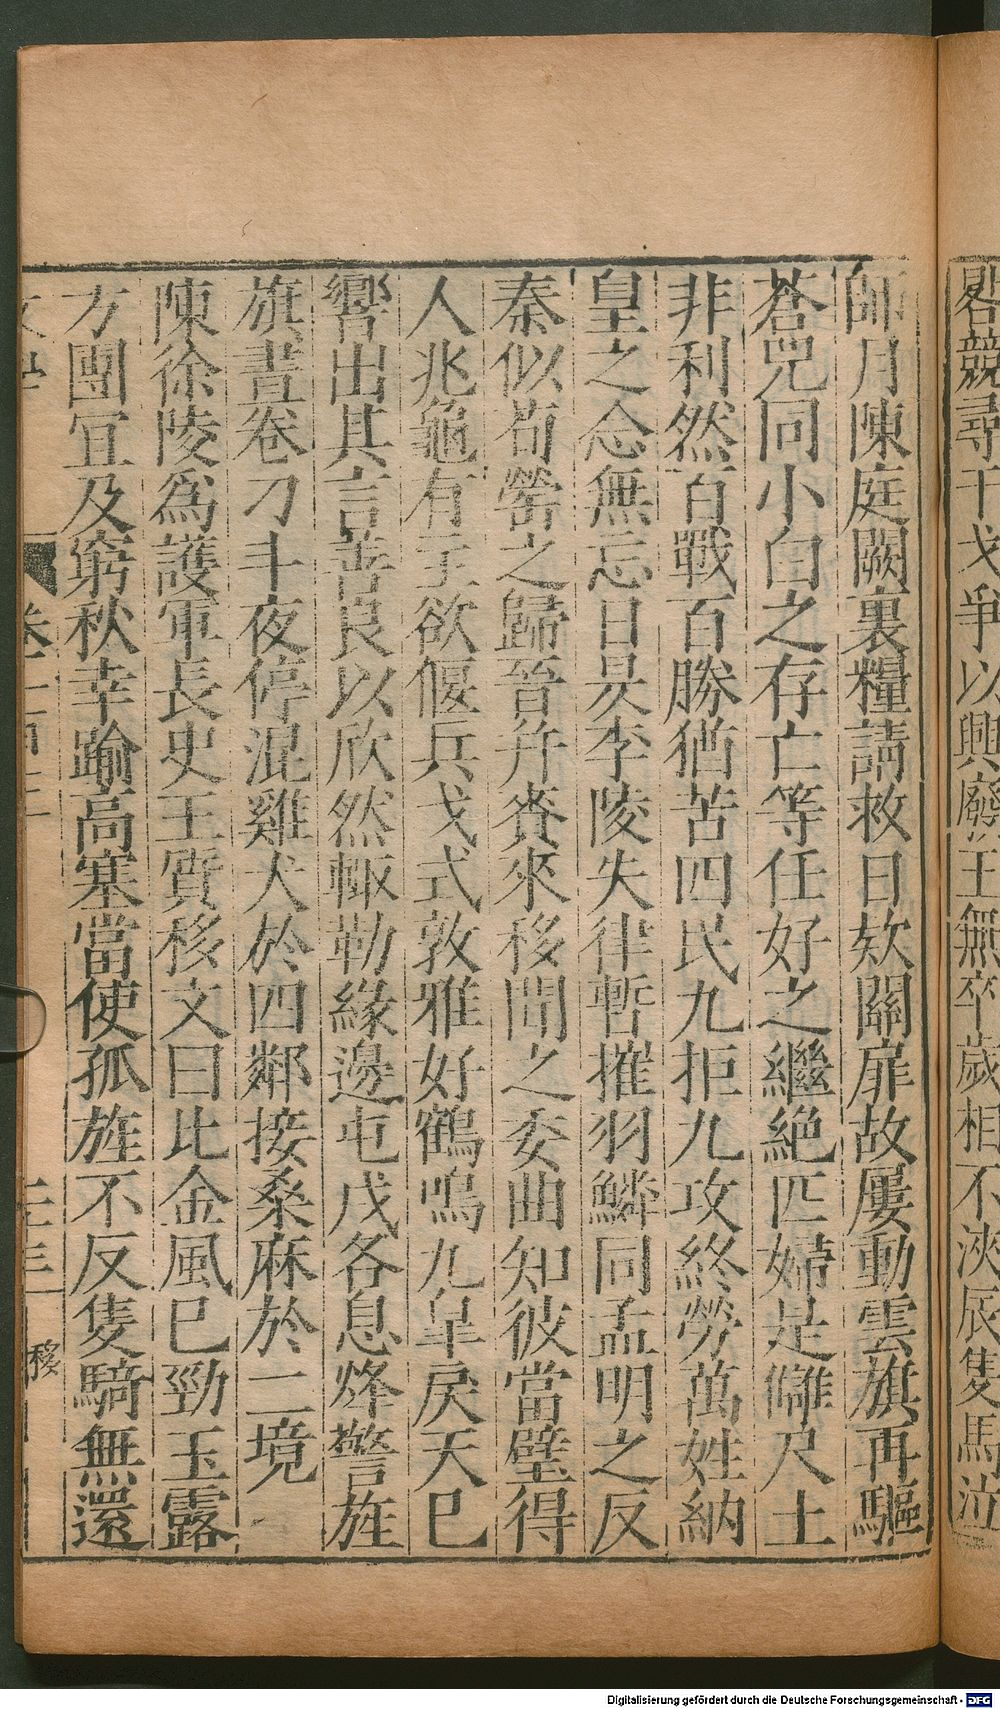 畧競尋干戈爭以興廢王無卒歲相不浹辰隻馬
師月陳庭闕裏糧請救日欸關扉故屢動雲旗再驅
蒼兕同小白之存亡等任好之繼絶匹婦是讎尺土
非利然百戰百勝猶苦四民九拒九攻終勞萬姓納
皇之念無忘日昃李陵失律暫摧羽鱗同孟明之反
秦似荀罃之歸晉并賚來移聞之委曲知彼當璧得
人兆龜有主欲偃兵戈式敦雅好鶴鳴九皐戾天巳
響出其言善良以欣然輙勒緣邊屯戍各息烽警旌
旗晝卷刁斗夜停混雞犬於四鄰接桑麻於二境
陳徐陵爲護軍長史王質移文曰比金風巳勁玉露
方團宜及窮秋幸踰高塞當使孤旌不反隻騎無還
移
Digitalisierung gefördert durch die Deutsche Forschungsgemeinschaft - DFG